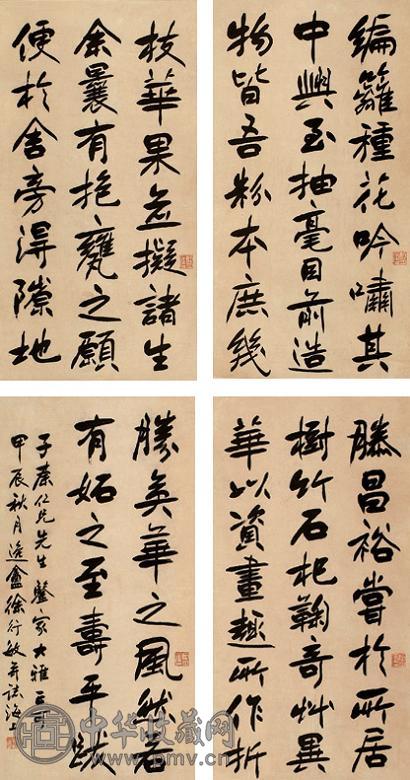 滕昌裕嘗於所居
樹竹石杞鞠奇艸異
華以資畫趣所作折
枝華果並擬諸生
余曩有抱甕之願
便於舍旁得隙地
編籬種花吟嘯其
中興至抽毫目前造
物皆吾粉本庶幾
勝英華之風然若
有妬之至壽平跋
仁兄先生鑒家大雅正
甲辰秋月盦徐行敏并海上
中华收藏网
www.pmv.cn